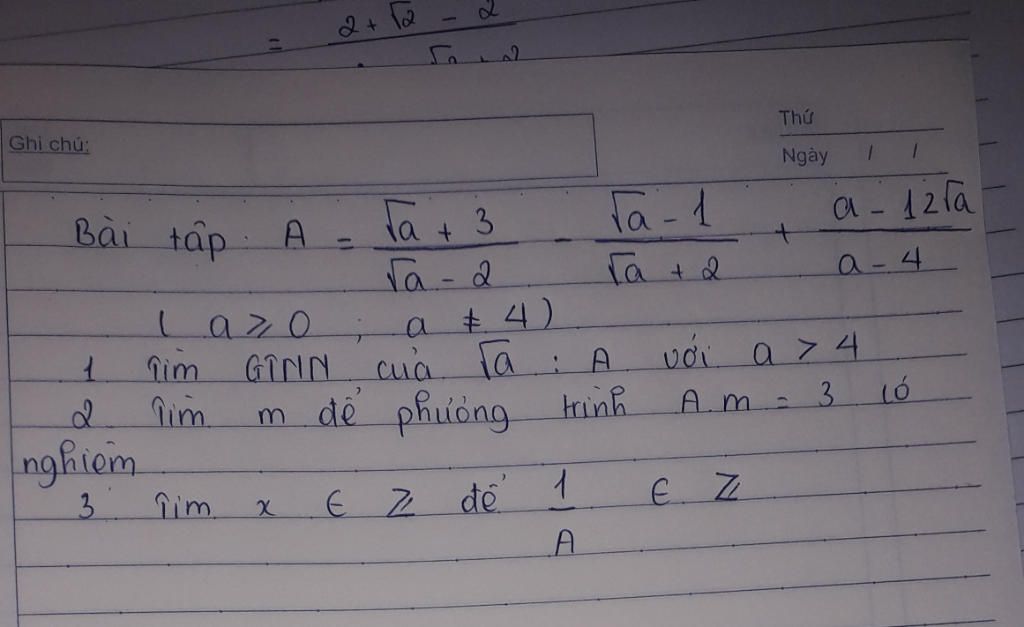 = (2 + √2 - 2)/(√2 + 2)
Ghi chú:
Thứ
Ngày / /
Bài tập: A = (√a + 3)/(√a - 2) - (√a - 1)/(√a + 2) + (a - 12√a)/(a - 4)
( a ≥ 0 ; a ≠ 4 )
1 Tìm GTNN của √a : A với a > 4
2 Tìm m để phương trình A.m = 3 có
nghiệm
3 Tìm x ∈ Z để 1/A ∈ Z